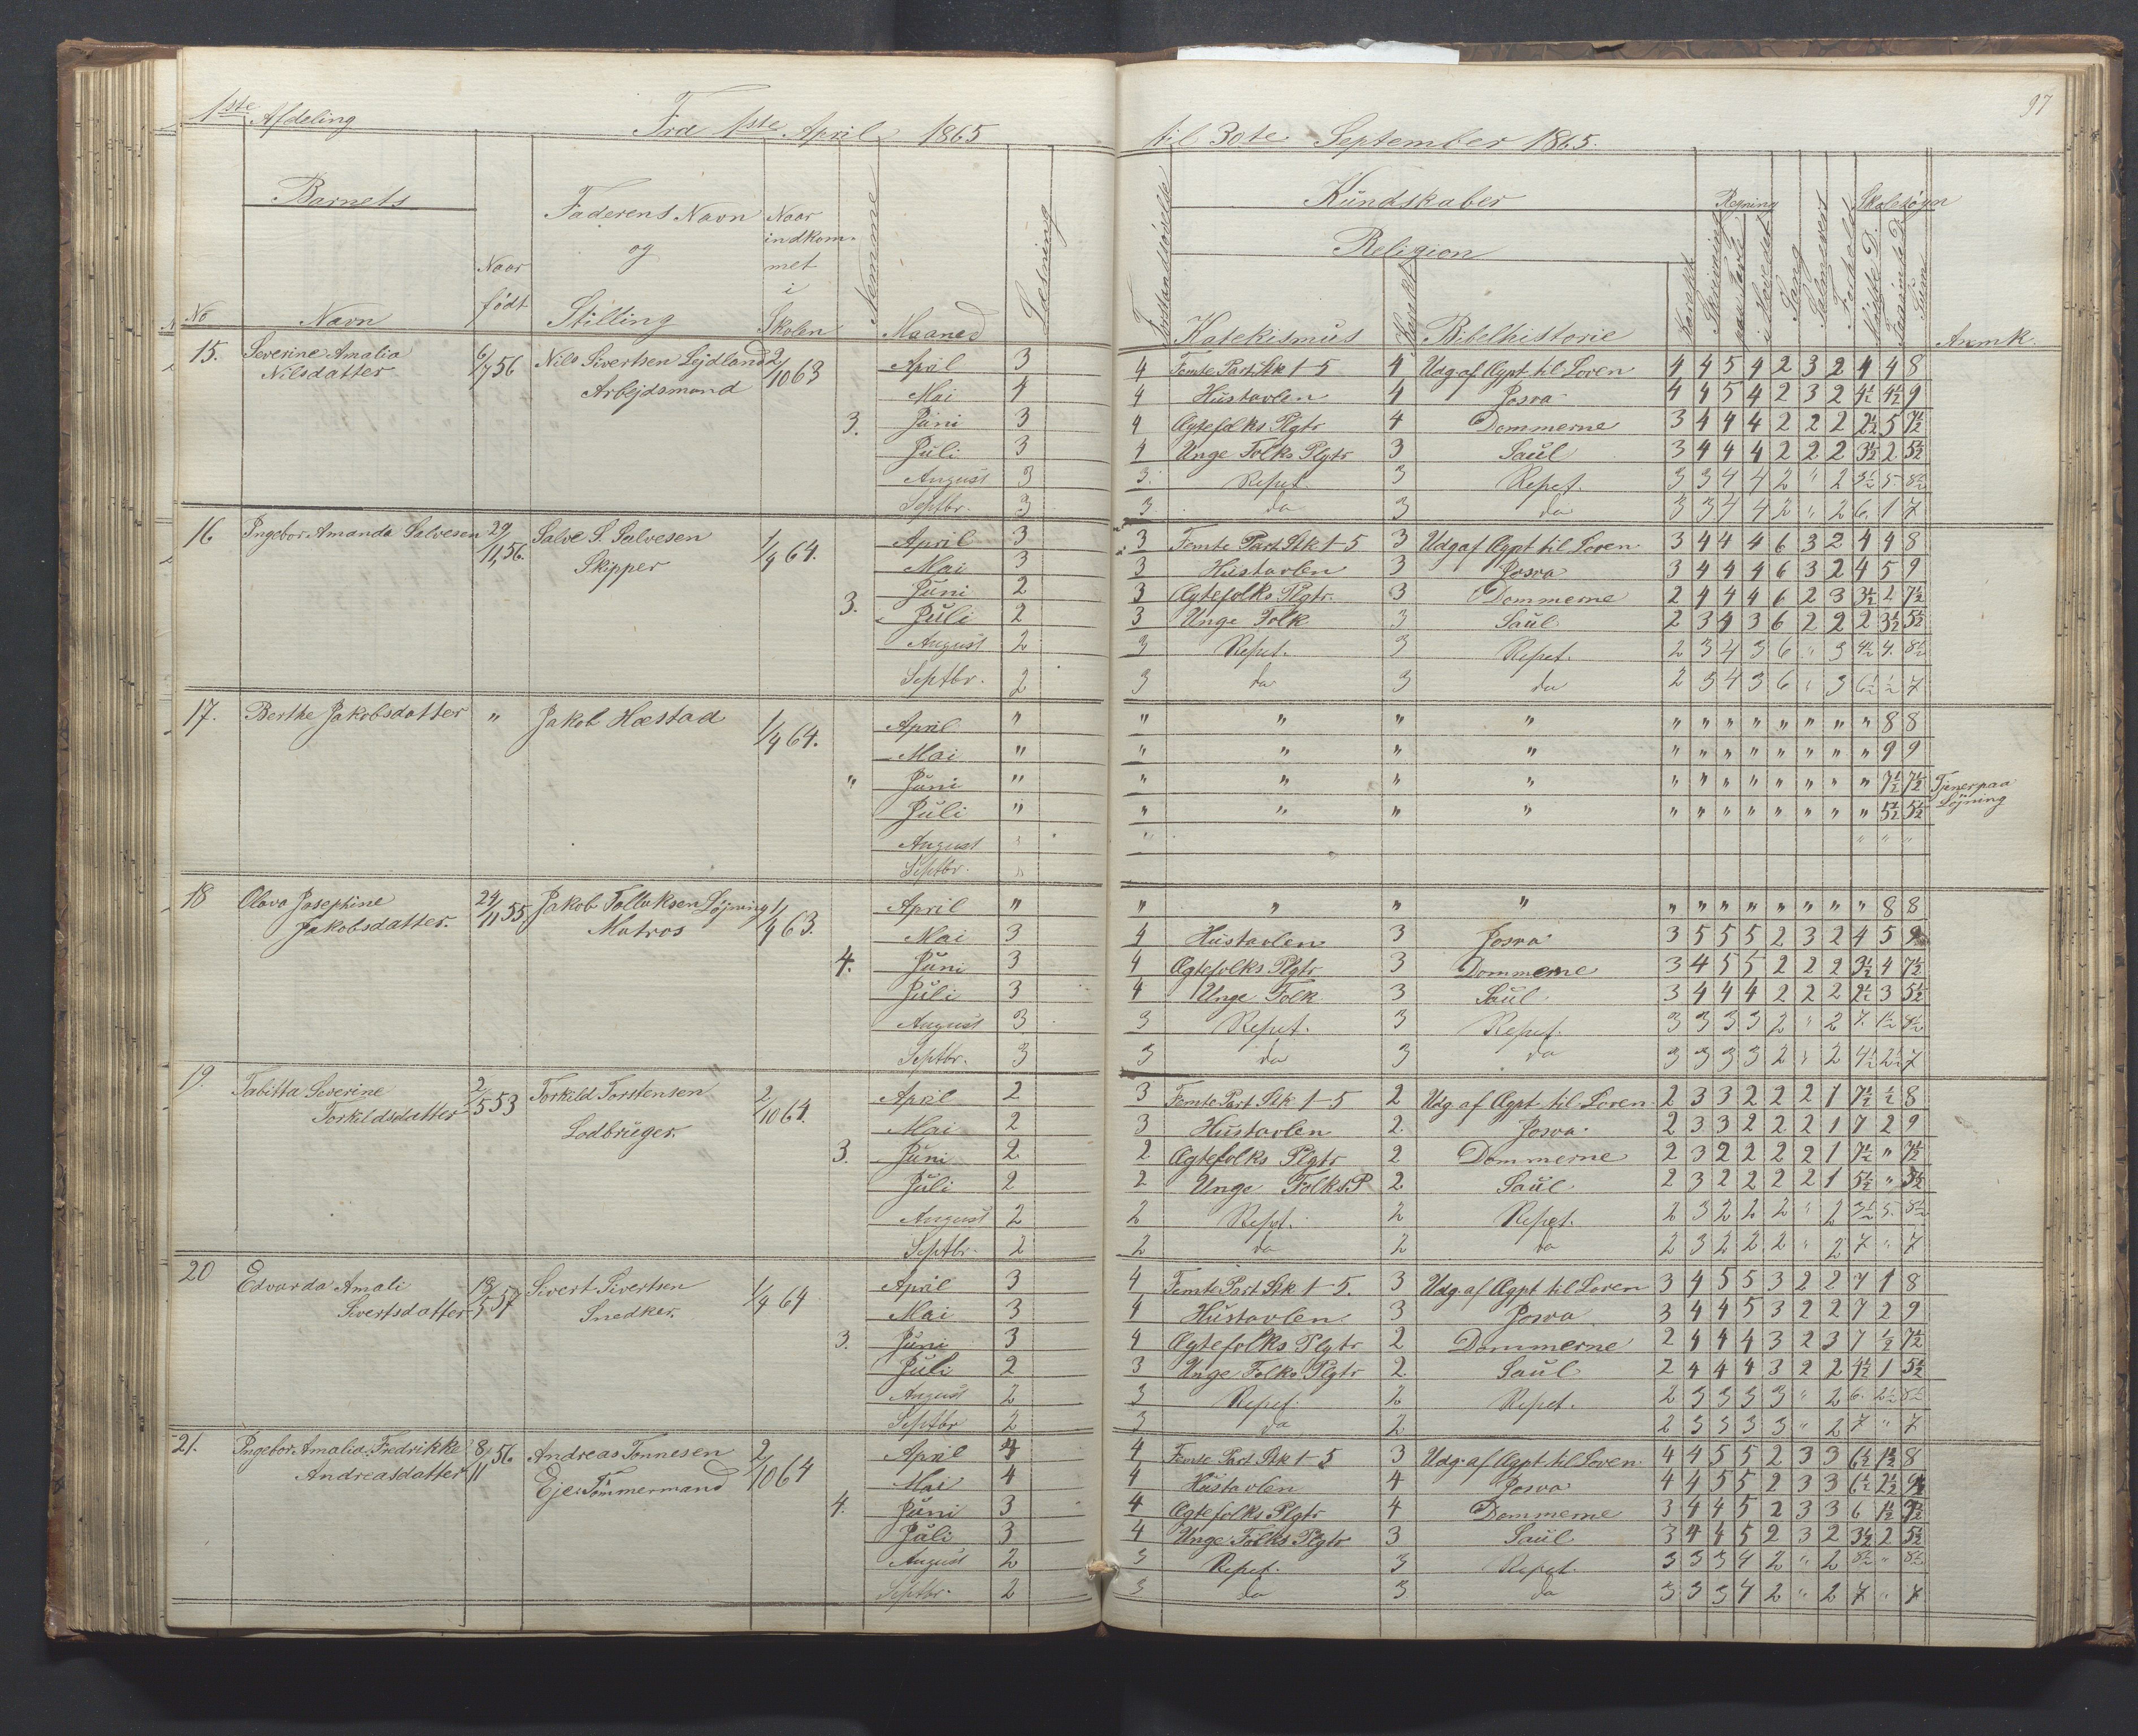 97
1ste Afdeling Fra 1ste April 1865 til 30te September 1865.
Barnets Faderens Navn og Stilling Naar indkommet i Skolen Nemme Maaned Læsning
No Navn Naar født
Forstandsøvelse Kundskaber Religion Katekismus Karakt Bibelhistorie Karakt Skrivning Regning paa Tavle i Hovedet Sang Forhold Skolesøgn Mødte D. Forsømte D. Sum Anmk.
15. Severine Amalia 6/7 56 Nils Sivertsen Lejdland 2/10 63 April 3 4 Femte Part Stk 1-5 4 Udg. af Ægpt til Loven 4 4 5 4 2 3 2 4 4 8
Nilsdatter Arbejdsmand Mai 4 4 Hustavlen 4 Josva 4 4 5 4 2 3 2 4½ 4½ 9
3. Juni 3 4 Ægtefolks Plgtr 4 Dommerne 3 4 4 4 2 2 2 2½ 5 7½
Juli 3 4 Unge Folks Plgtr 3 Saul 3 4 4 4 2 2 2 3½ 2 5½
August 3 3 Repet. 3 Repet. 3 3 4 4 2 " 2 3½ 5 8½
Septbr. 3 3 do 3 do 3 3 4 4 2 " 2 6 1 7
16 Ingebor Amanda Salvesen 29/11 56. Salve S. Salvesen 1/4 64. April 3 3 Femte Part Stk 1-5 3 Udg af Ægpt til Loven 3 4 4 4 6 3 2 4 4 8
Skipper Mai 3 3 Hustavlen 3 Josva 3 4 4 4 6 3 2 4 5 9
3. Juni 2 3 Ægtefolks Plgtr. 3 Dommerne 2 4 4 4 6 2 3 3½ 4 7½
Juli 2 3 Unge Folk 3 Saul 2 3 4 3 6 2 2 2 3½ 5½
August 2 3 Repet. 3 Repet. 2 3 4 3 6 " 3 4½ 4 8½
Septbr. 2 3 do 3 do 2 3 4 3 6 " 3 6½ ½ 7
17. Berthe Jakobsdatter " Jakob Hæstad 1/4 64. April " " " " " " " " " " " " " 8 8
Mai " " " " " " " " " " " " " 9 9
" Juni " " " " " " " " " " " " " 7½ 7½ Tjener paa
Juli " " " " " " " " " " " " " 5½ 5½ Løjning
August " " " " "
Septbr. "
18 Olava Josephine 24/11 55. Jakob Tollaksen Løjning 1/4 63. April " " " " " " " " " " " " " 8 8
Jakobsdatter. Matros Mai 3 4 Hustavlen 3 Josva 3 5 5 5 2 3 2 4 5 9
4. Juni 3 4 Ægtefolks Plgtr 3 Dommerne 3 4 5 5 2 2 2 3½ 4 7½
Juli 3 4 Unge Folk 3 Saul 3 4 4 4 2 2 2 2½ 3 5½
August 3 3 Repet. 3 Repet. 3 3 3 3 2 " 2 7 1½ 8½
Septbr. 3 3 do 3 do 3 3 3 3 2 " 2 4½ 2½ 7
19. Tabitta Severine 2/5 53 Torkild Torstensen 2/10 64. April 2 3 Femte Part Stk 1-5 2 Udg. af Ægpt til Loven 2 3 3 2 2 2 1 7½ ½ 8
Torkildsdatter Lodbruger. Mai 2 3 Hustavlen 2 Josva 2 3 3 2 2 2 1 7 2 9
3. Juni 2 2 Ægtefolks Plgtr 2 Dommerne 2 3 2 2 2 2 1 7½ " 7½
Juli 2 2 Unge Folks P 2 Saul 2 3 2 2 2 2 1 5½ " 5½
August 2 2 Repet. 2 Repet. 2 3 2 2 2 " 2 3½ 5 8½
Septbr. 2 2 do 2 do 2 3 2 2 2 " 2 7 " 7
20 Edvarda Amali 13/5 57 Sivert Sivertsen 1/4 64 April 3 4 Femte Part Stk 1-5. 3 Udg. af Ægpt til Loven 3 4 5 5 3 2 2 7 1 8
Sivertsdatter Snedker. Mai 3 4 Hustavlen 3 Josva 3 4 4 5 3 2 2 7 2 9
3. Juni 3 4 Ægtefolks Plgtr 2 Dommerne 2 4 4 4 3 2 3 7 ½ 7½
Juli 2 3 Unge Folks Plgtr 2 Saul 2 4 4 4 3 2 2 4½ 1 5½
August 2 3 Repet. 2 Repet. 2 3 3 3 3 " 2 6 2½ 8½
Septbr 2 3 do 2 2 3 3 3 3 " 2 7 " 7
21. Ingebor Amalia Fredrikke 8/11 56 Andreas Tønnesen 2/10 64 April 4 4 Femte Part Stk 1-5 3 Udg. af Ægpt til Loven 4 4 5 5 2 3 3 6½ 1½ 8
Andreasdatter Eje. Tømmermand Mai 4 4 Hustavlen 4 Josva 4 4 5 5 2 3 3 6½ 2½ 9
4. Juni 3 4 Ægtefolks Plgtr 4 Dommerne 3 4 4 5 2 3 3 6 1½ 7½
Juli 3 4 Unge Folks Plgtr 3 Saul 3 4 4 5 2 3 2 3½ 2 5½
August 2 3 Repet. 3 Repet. 3 3 3 4 2 " 2 8½ " 8½
Septbr. 2 3 do 3 do 3 3 3 4 2 " 2 7 " 7